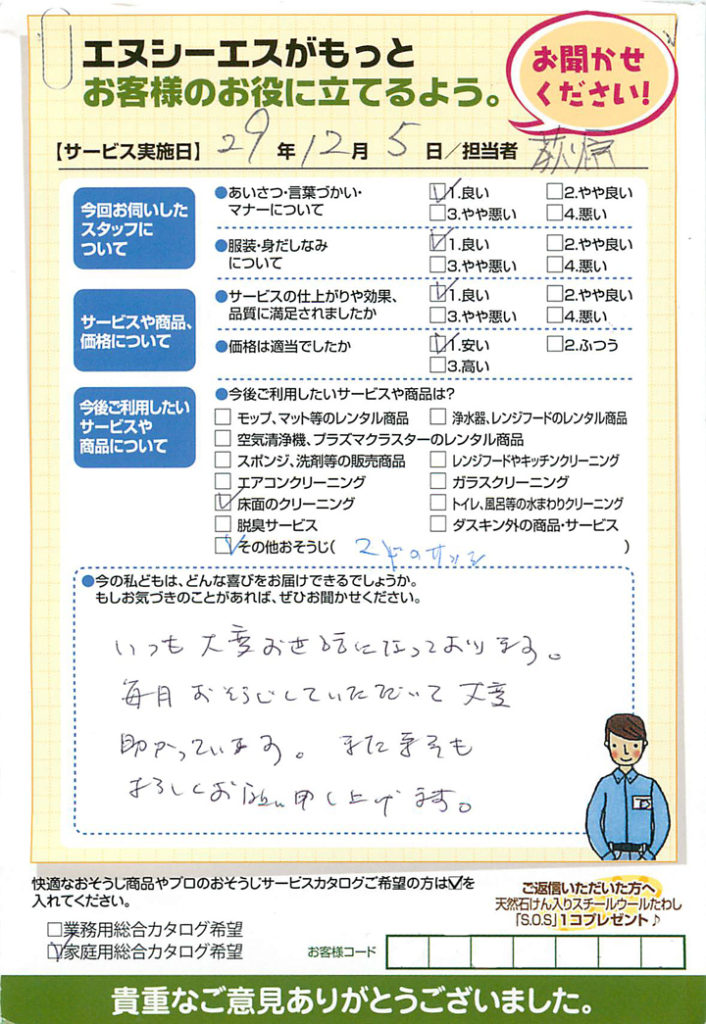 エヌシーエスがもっと
お客様のお役に立てるよう。
お聞かせ
ください!
【サービス実施日】 29 年 12 月 5 日/担当者 萩原
今回お伺いした
スタッフに
ついて
●あいさつ・言葉づかい・
マナーについて
1.良い 2.やや良い
3.やや悪い 4.悪い
●服装・身だしなみ
について
1.良い 2.やや良い
3.やや悪い 4.悪い
サービスや商品、
価格について
●サービスの仕上がりや効果、
品質に満足されましたか
1.良い 2.やや良い
3.やや悪い 4.悪い
●価格は適当でしたか
1.安い 2.ふつう
3.高い
今後ご利用したい
サービスや
商品について
●今後ご利用したいサービスや商品は?
モップ、マット等のレンタル商品 浄水器、レンジフードのレンタル商品
空気清浄機、プラズマクラスターのレンタル商品
スポンジ、洗剤等の販売商品 レンジフードやキッチンクリーニング
エアコンクリーニング ガラスクリーニング
床面のクリーニング トイレ、風呂等の水まわりクリーニング
脱臭サービス ダスキン外の商品・サービス
その他おそうじ( マドのサッシ )
●今の私どもは、どんな喜びをお届けできるでしょうか。
もしお気づきのことがあれば、ぜひお聞かせください。
いつも大変お世話になっております。
毎月おそうじしていただいて大変
助かっています。また来年も
よろしくお願い申し上げます。
快適なおそうじ商品やプロのおそうじサービスカタログご希望の方は☑を
入れてください。
業務用総合カタログ希望
家庭用総合カタログ希望
ご返信いただいた方へ
天然石けん入りスチールウールたわし
「S.O.S」1コプレゼント♪
お客様コード
貴重なご意見ありがとうございました。